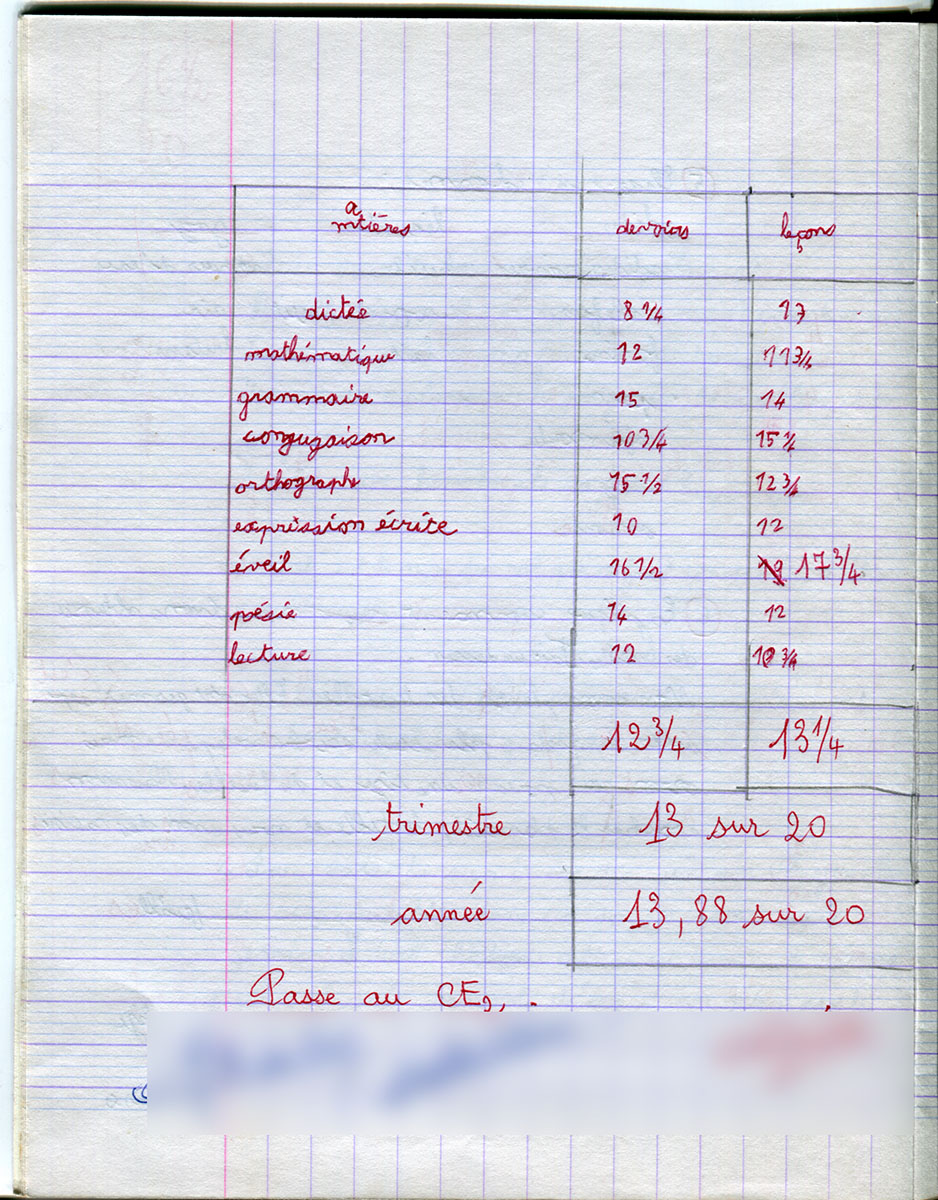 matières devoirs leçons
dictée 8 1/4 17
mathématique 12 11 3/4
grammaire 15 14
conjugaison 10 3/4 15 1/2
orthographe 15 1/2 12 3/4
expression écrite 10 12
éveil 16 1/2 17 3/4
poésie 14 12
lecture 12 10 3/4
12 3/4 13 1/4
trimestre 13 sur 20
année 13,88 sur 20
Passe au CE2.